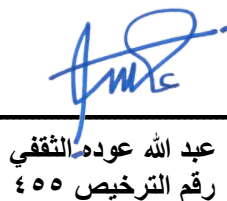 عبد الله عوده الثقفي
رقم الترخيص ٤٥٥